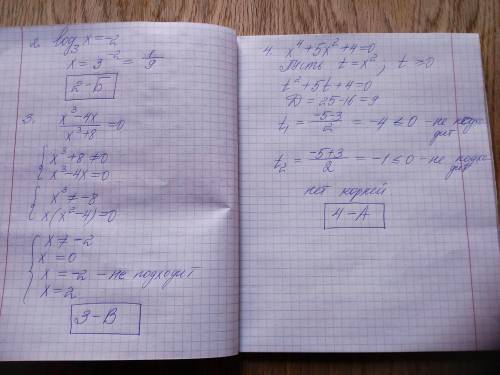 2. log₃ x = -2
x = 3⁻² = 1/9
2-Б
3. (x³-4x)/(x³+8) = 0
{ x³+8 ≠ 0
x³-4x = 0
{ x³ ≠ -8
x(x²-4) = 0
{ x ≠ -2
x = 0
x = -2 - не подходит
x = 2
3-В
4. x⁴+5x²+4=0
Пусть t=x², t ≥0
t²+5t+4=0
D = 25-16=9
t₁ = (-5-3)/2 = -4 ≤ 0 - не подходит
t₂ = (-5+3)/2 = -1 ≤ 0 - не подходит
нет корней
4-А